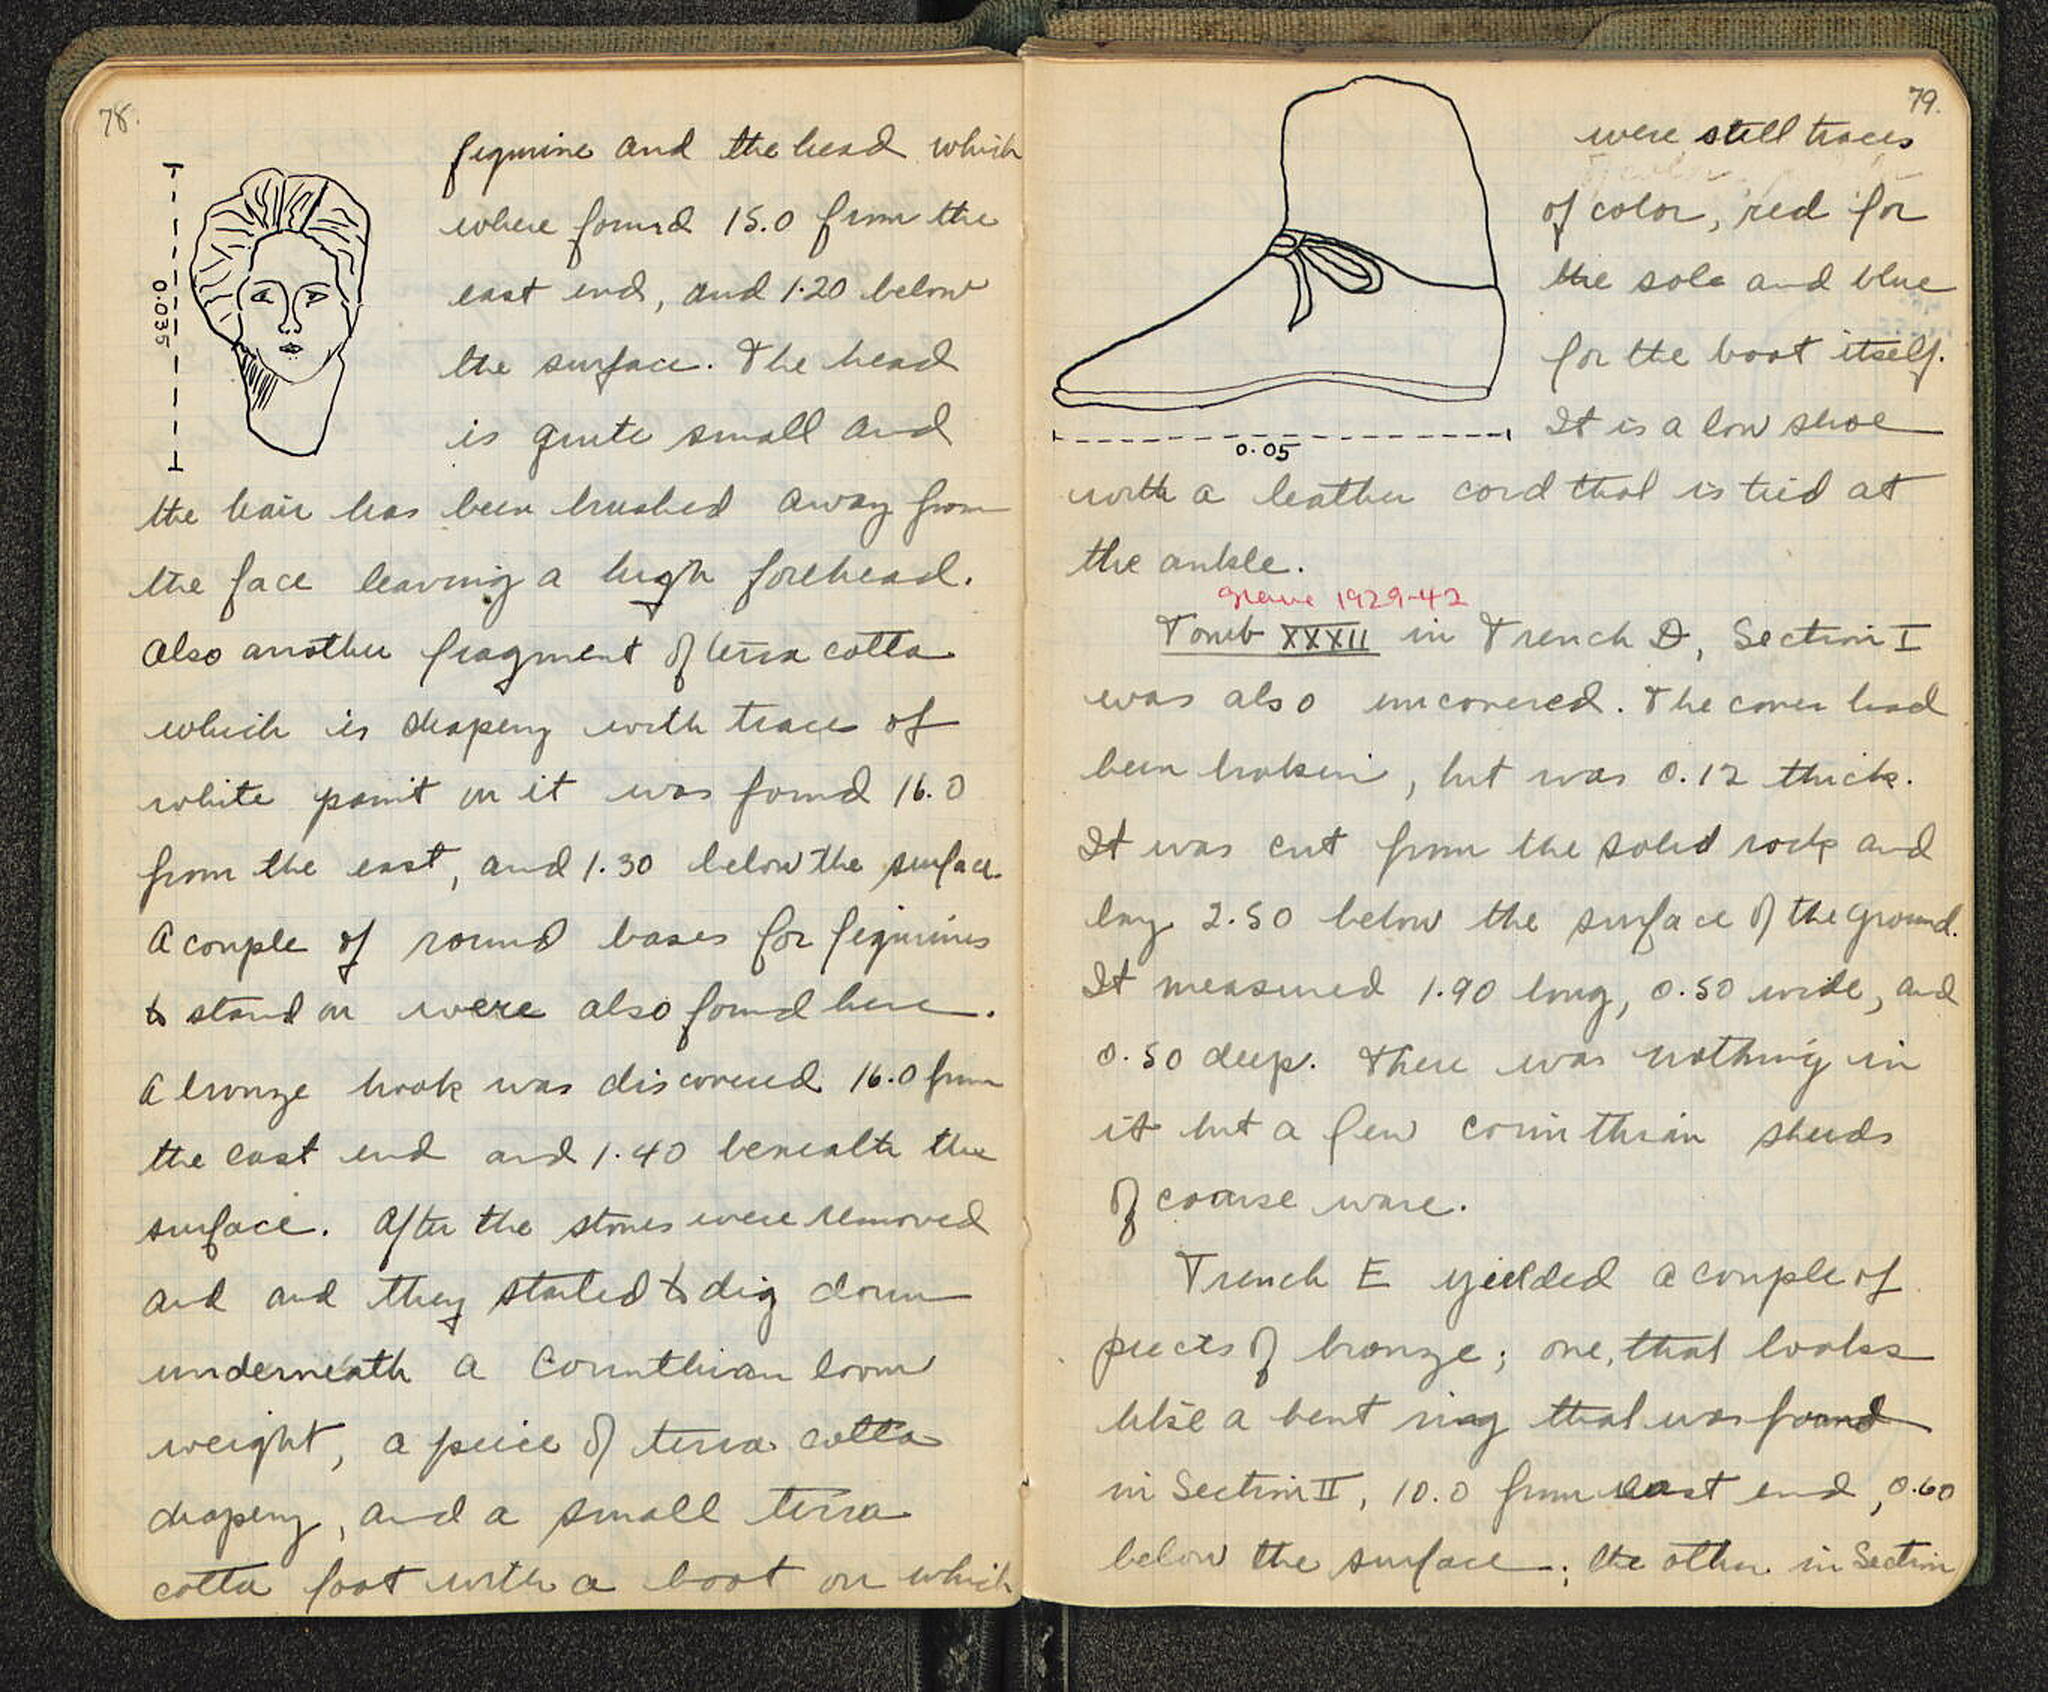 78.
figurine and the head which
where found 15.0 from the
east end, and 1.20 below
the surface. The head
is quite small and
0.035
the hair has been brushed away from
the face leaving a high forehead.
Also another fragment of terra cotta
which is drapery with trace of
white paint on it was found 16.0
from the east, and 1.30 below the surface.
A couple of round bases for figurines
to stand on were also found here.
A bronze hook was discovered 16.0 from
the east end and 1.40 beneath the
surface. After the stones were removed
and and they started to dig down
underneath a Corinthian loom
weight, a peice of terra cotta
drapery, and a small terra
cotta foot with a boot on which
79.
were still traces
of color, red for
the sole and blue
for the boot itself.
It is a low shoe
0.05
with a leather cord that is tied at
the ankle.
grave 1929-42
Tomb XXXII in Trench D, Section I
was also uncovered. The cover had
been broken, but was 0.12 thick.
It was cut from the solid rock and
lay 2.50 below the surface of the ground.
It measured 1.90 long, 0.50 wide, and
0.50 deep. There was nothing in
it but a few corinthian sherds
of coarse ware.
Trench E yielded a couple of
pieces of bronze; one, that looks
like a bent ring that was found
in Section II, 10.0 from east end, 0.60
below the surface; the other in Section